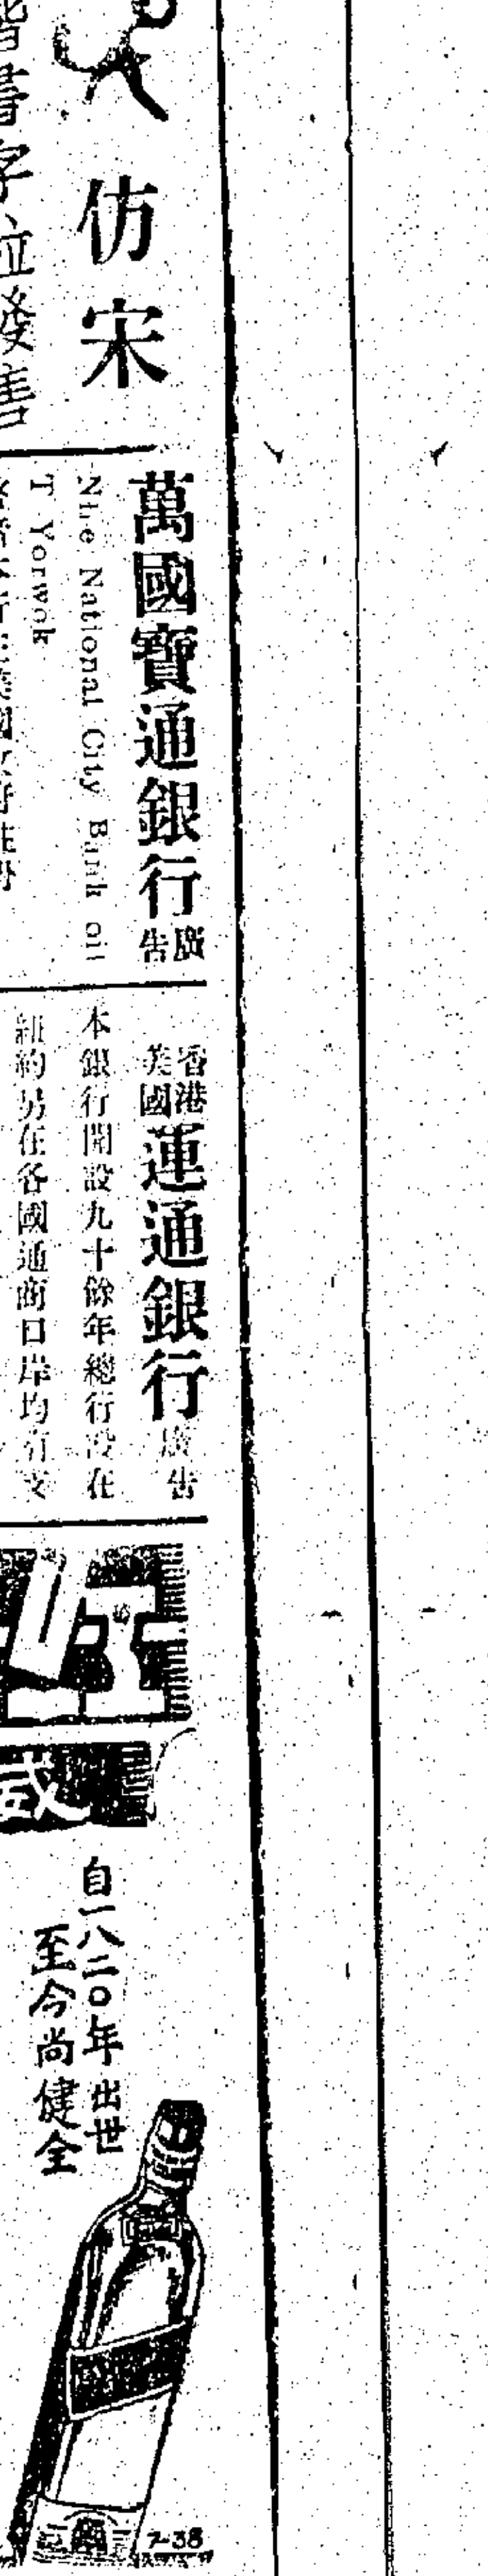 仿宋
楷書字粒發售
萬國寶通銀行廣告
Nhe National City Bank oil
T Yorwok
香港美國運通銀行廣告
本銀行開設九十餘年總行設在
紐約另在各國通商口岸均有支
自一八二〇年出世
至今尚健全
7-38